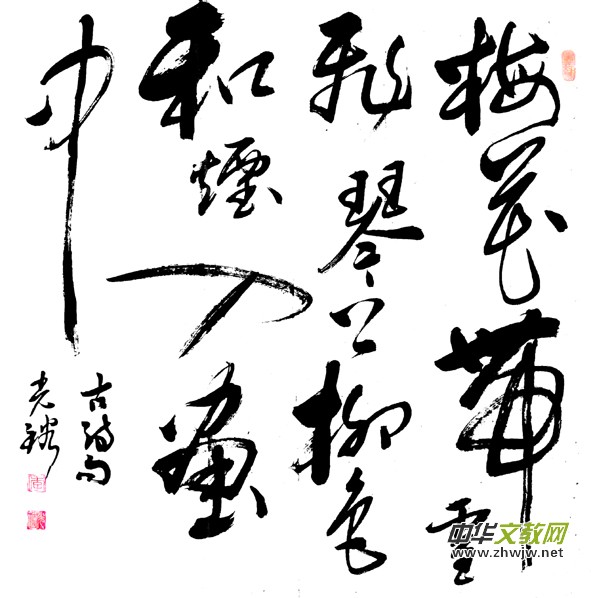 梅花帶雪
飛琴上柳色
和煙入畫
中
古詩句
光
中华文教网
www.zhwjw.net